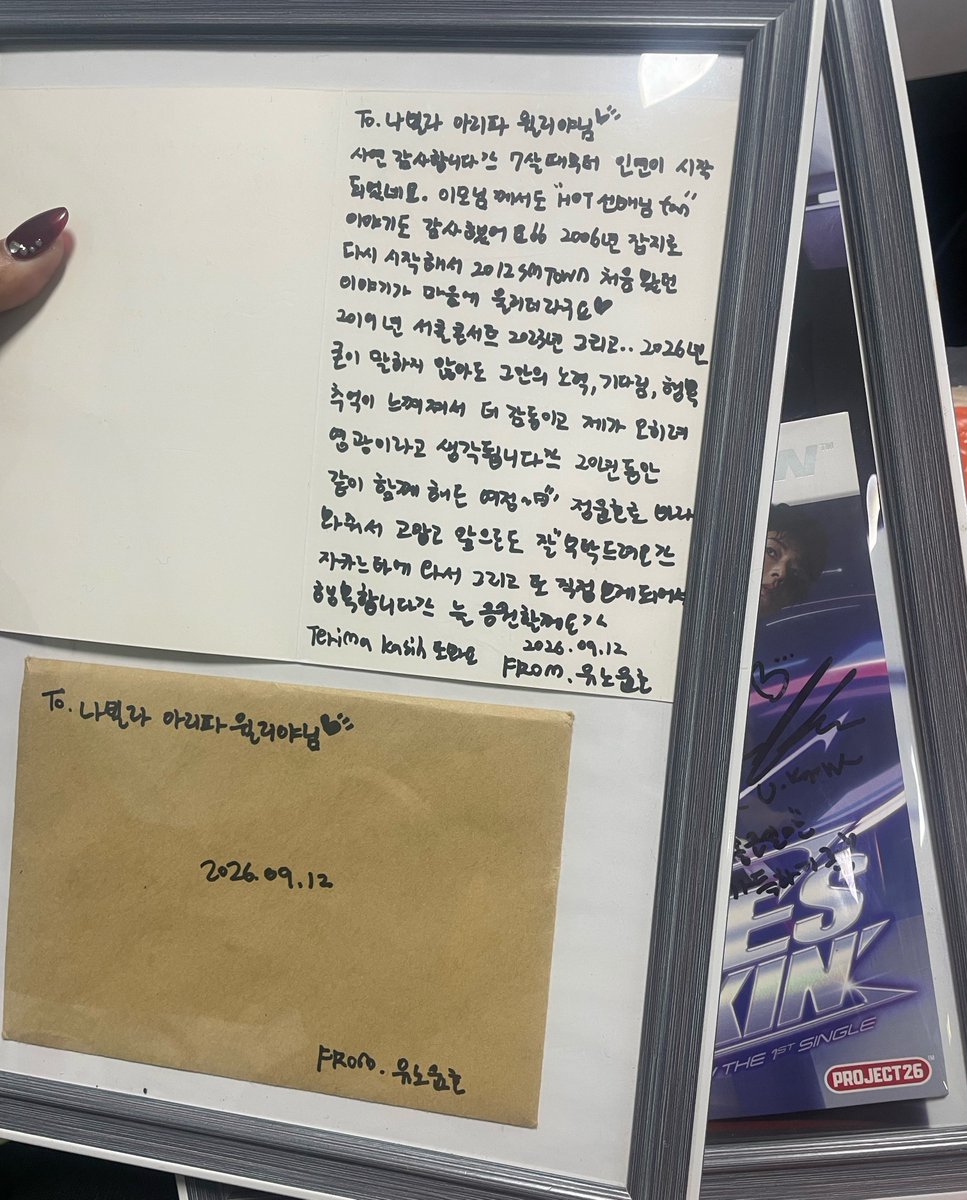 To. 나빌라 아리파 윌리야님
사연 감사합니다 7살때부터 인연이 시작
되었네요. 이모님께서도 "HOT 선배님 fan"
이야기도 감사했어요 2006년 잡지로
다시 시작해서 2012 SMTOWN 처음 봤던
이야기가 마음에 울리더라구요♥
2019년 서울콘서트 2023년 그리고.. 2026년
굳이 말하지 않아도 그만의 노력, 기다림, 행복
추억이 느껴져서 더 감동이고 제가 오히려
영광이라고 생각됩니다 20년동안
같이 함께 해준 여정~ 정윤호로 바라
봐줘서 고맙고 앞으로도 잘 부탁드려요
자카르타에 와서 그리고 또 직접 보게되어서
행복합니다 늘 응원할께요
Terima kasih 또봐요
2026.09.12
FROM. 유노윤호
To. 나빌라 아리파 윌리야님
2026.09.12
FROM. 유노윤호
N
U.Know
ES
KIN
THE 1ST SINGLE
PROJECT26